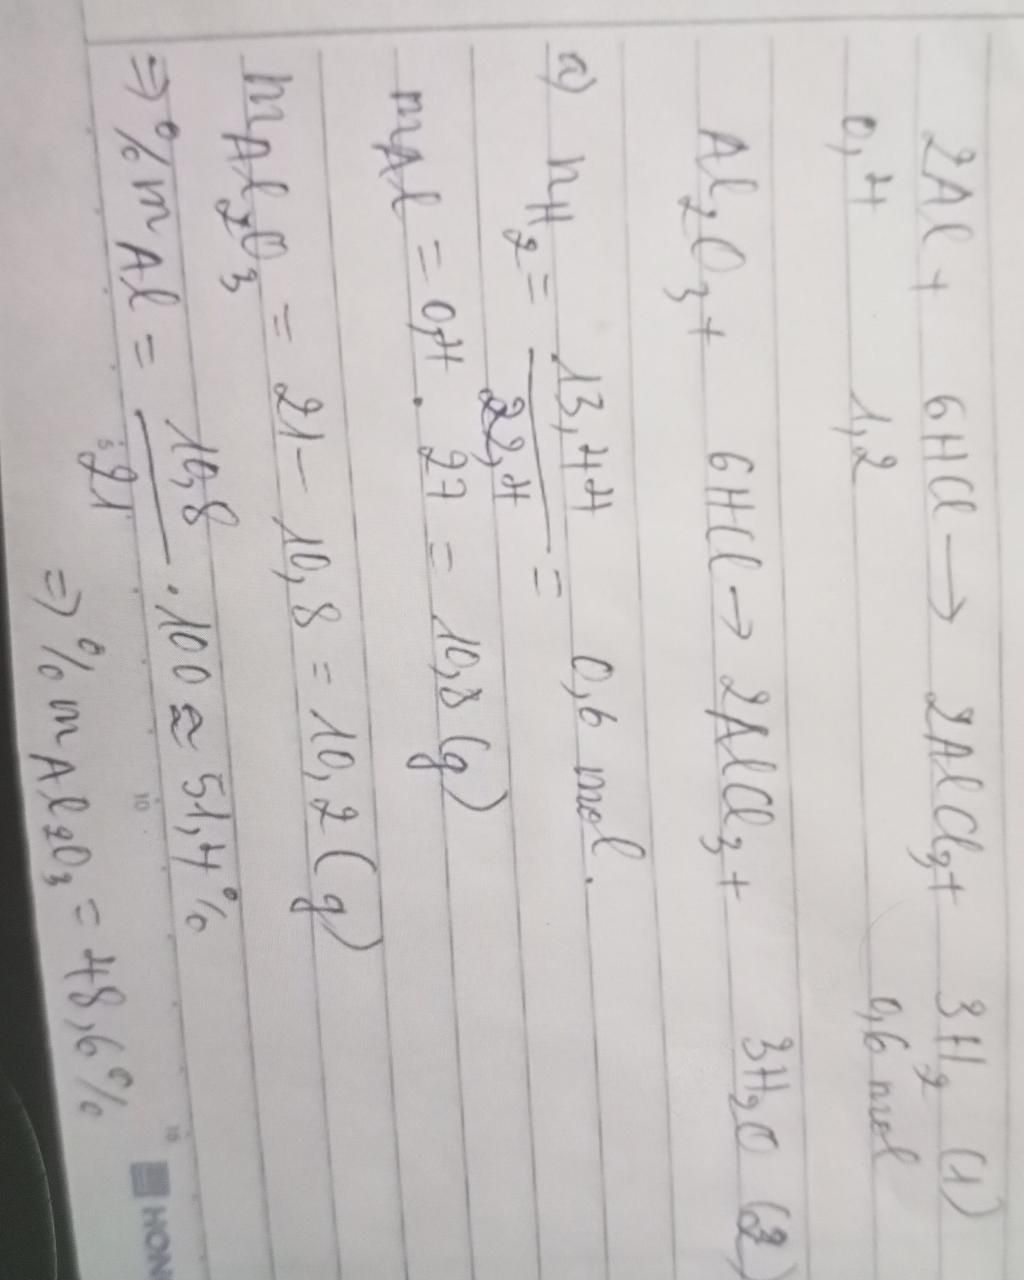 2Al + 6HCl → 2AlCl3 + 3H2 (1)
0,4 1,2 0,6 mol
Al2O3 + 6HCl → 2AlCl3 + 3H2O (2)
a) nH2 = 13,44 / 22,4 = 0,6 mol.
mAl = 0,4 . 27 = 10,8 (g)
mAl2O3 = 21 - 10,8 = 10,2 (g)
⇒ % mAl = 10,8 / 21 . 100 ≈ 51,4%
⇒ % mAl2O3 = 48,6%
5 10 16
HON